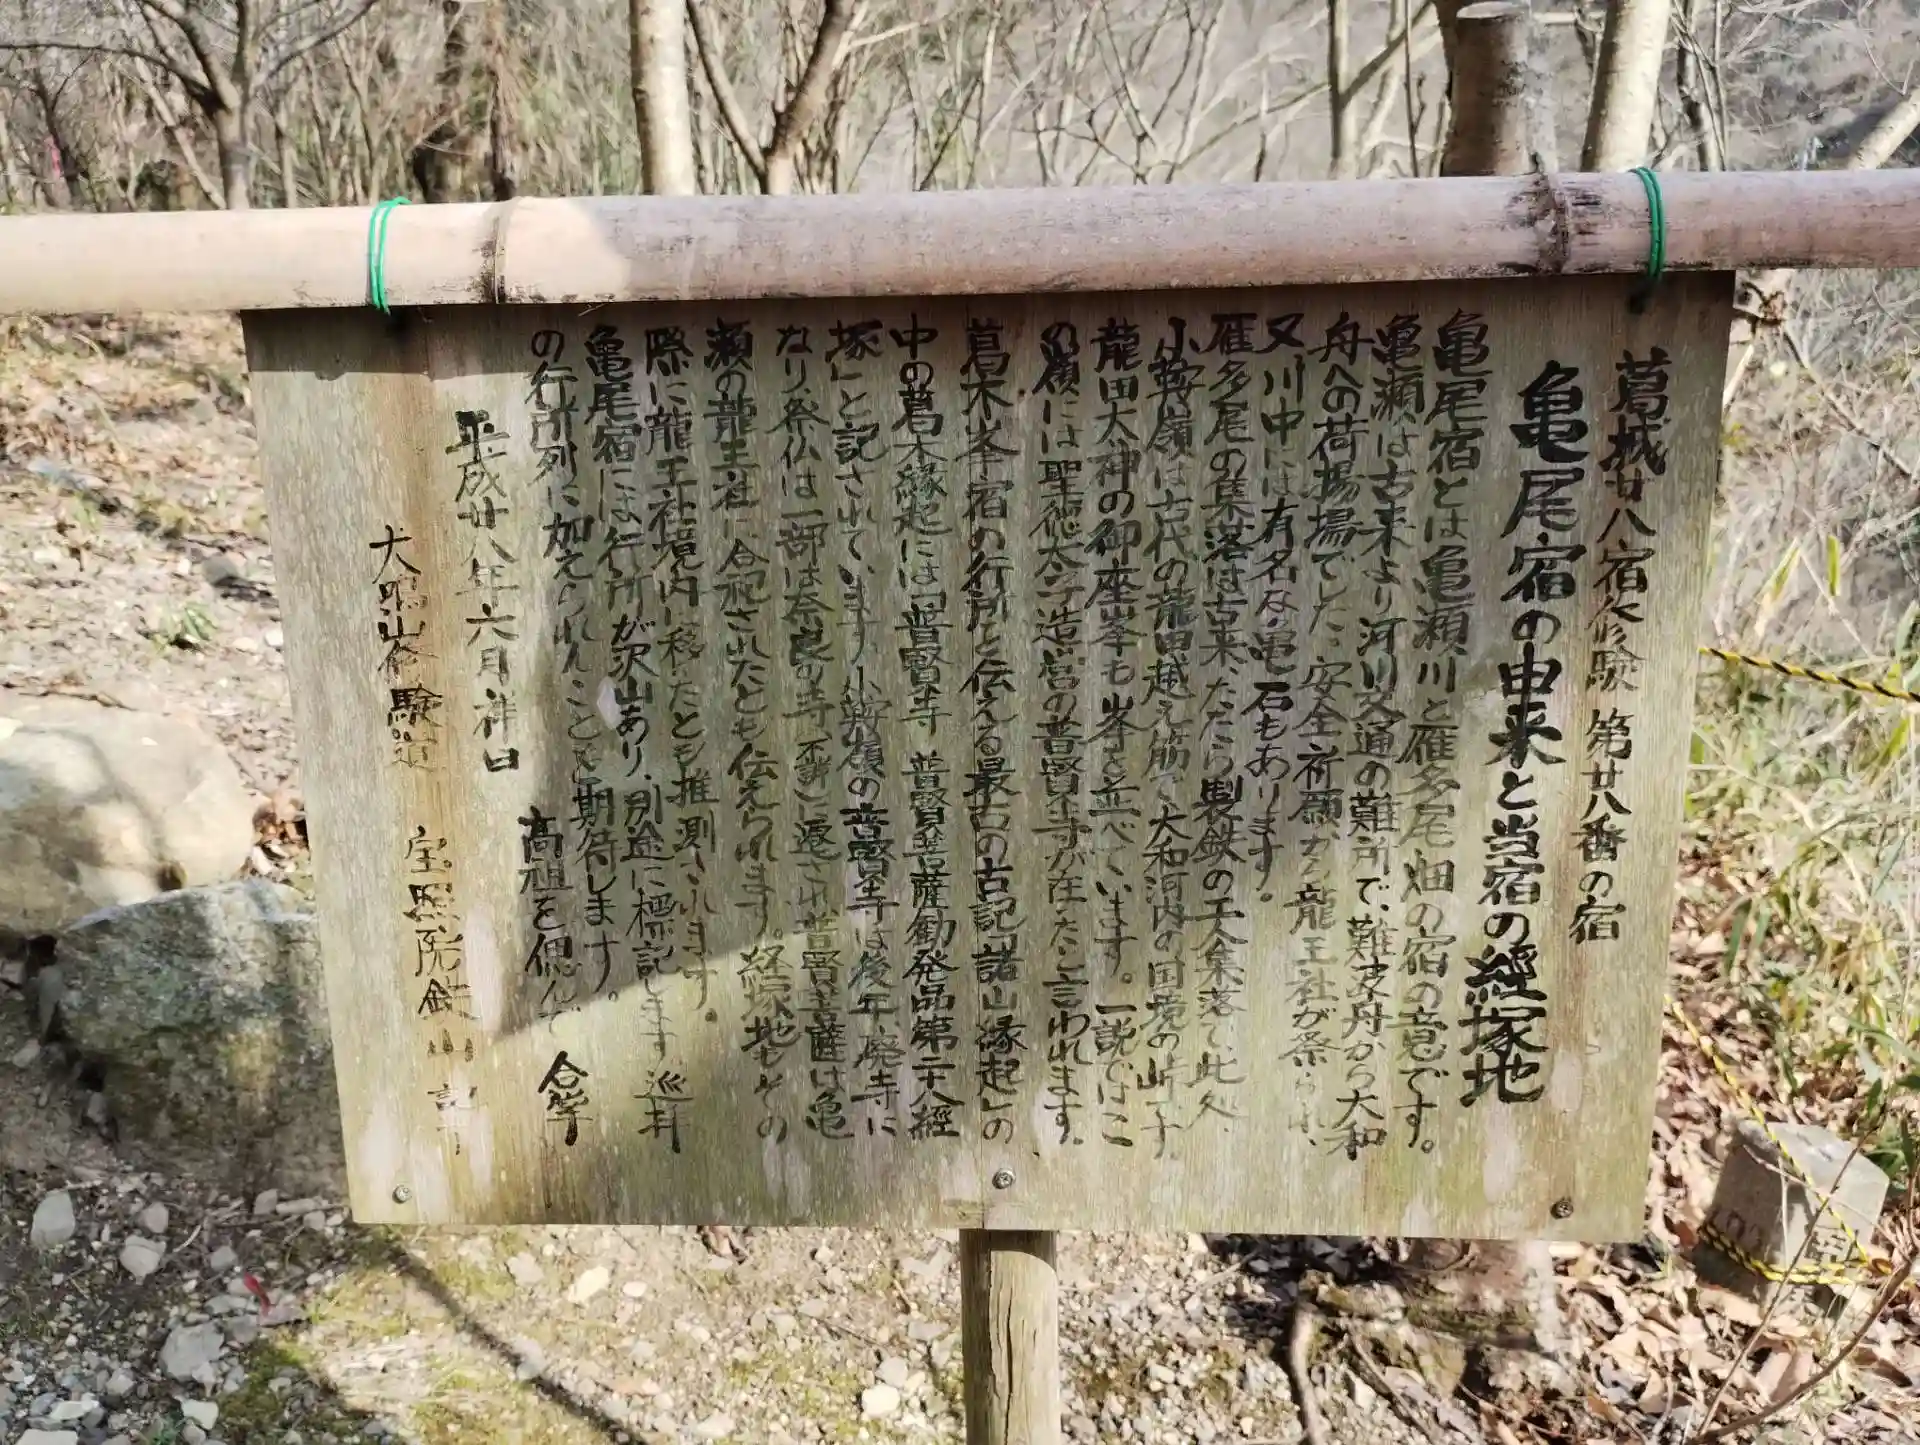 葛城廿八宿修験 第廿八番の宿
亀尾宿の由来と当宿の經塚地
亀尾宿とは亀瀬川と雁多尾畑の宿の意です。
亀瀬は古来より河川交通の難所で、難波舟から大和
舟への荷揚場でした、安全祈願から龍王社が祭られ、
又川中には有名な亀石もあります。
雁多尾の集落は古来、たたら製鉄の大集落で、此処、
小鞍嶺は古代の龍田越え筋で大和河内の国境の峠です
龍田大神の御座峯も峯を並べています。一説ではこ
の嶺には聖徳太子造営の普賢寺が在たと言われます。
葛木峯宿の行所を伝える最古の古記「諸山縁起」の
中の葛木縁起には「普賢寺 普賢菩薩勧発品第二十八經
塚」と記されています。小鞍嶺の普賢寺は後年、廃寺に
なり祭仏は一部は奈良の寺に遷され普賢菩薩は亀
瀬の龍王社に合祀されたとも伝えられます。経塚地もその
際に龍王社境内に移したとも推測されます。
亀尾宿には行所が沢山あり、別途に標記します、巡拝
の行所列に加えられんことを期待します。
高祖を偲んで 合掌
平成廿八年六月祥日
犬鳴山修験道 宝照院鉄山 記す